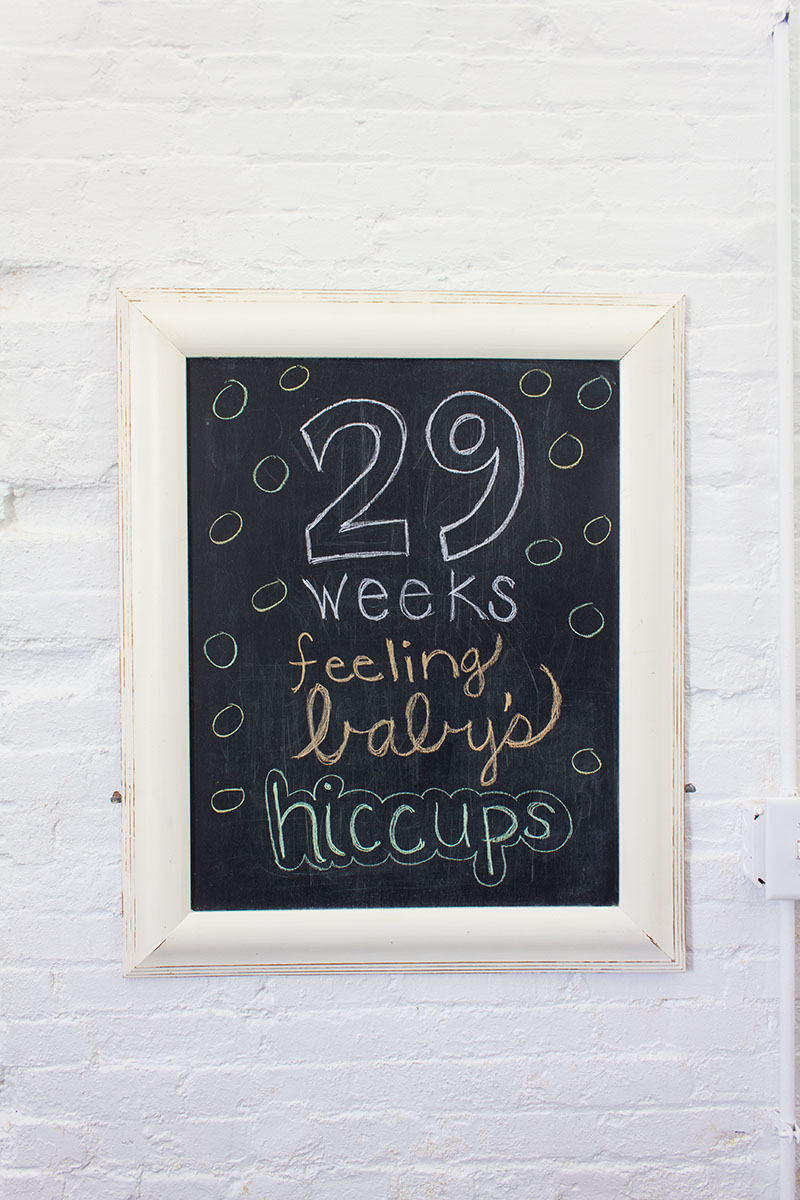 29
weeks
feeling
baby's
hiccups